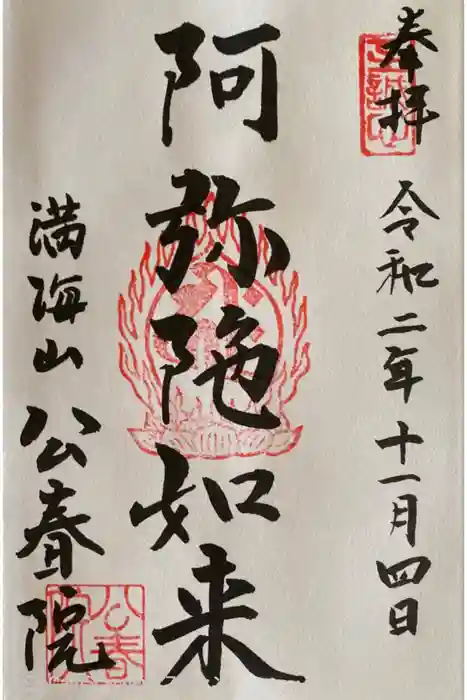 奉拝
令和二年十一月四日
阿弥陀如来
満海山
公春院
公春院